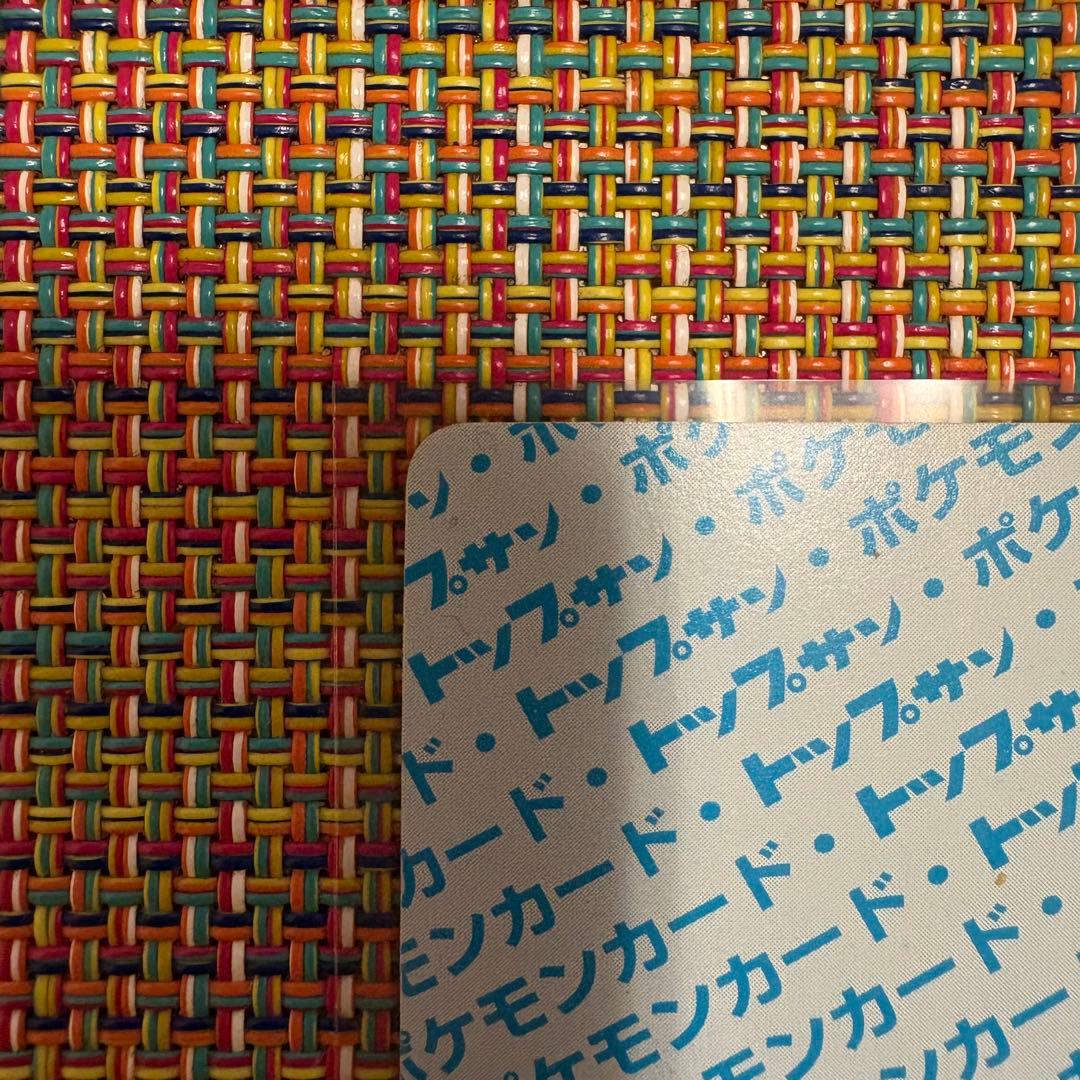 ン・ポ
プサン・ポケ
トップサン・ポケモ
ド・トップサン・ポケモン
カード・トップサン・ポケ
モンカード・トップサン・
ポケモンカード・トップサ
ケモンカード・トッ
モンカード・
ンカー